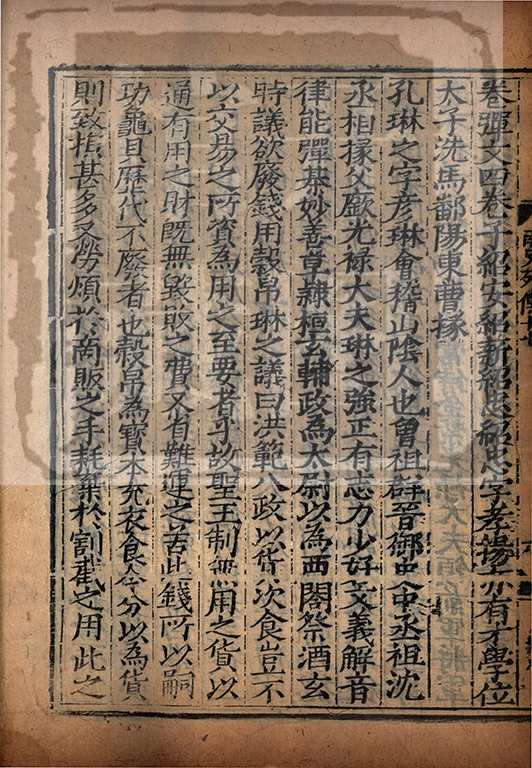 卷彈文四卷子紹安紹新紹忠紹忠字孝揚亦有才學位
太子洗馬鄱陽東曹掾
孔琳之字彦琳會稽山陰人也曾祖群晉御史中丞祖沈
丞相掾父廞光禄大夫琳之強正有志力少好文義解音
律能彈棊妙善草隸桓玄輔政為太尉以為西閤祭酒玄
時議欲廢錢用穀帛琳之議曰洪範八政以貨次食豈不
以交易之所資為用之至要者乎故聖王制無用之貨以
通有用之財旣無毀敗之費又有難運之苦此錢所以嗣
功龜貝歷代不廢者也穀帛為寳本充衣食今分以為貨
則致損甚多又勞煩於商販之手耗棄於割截之用此之